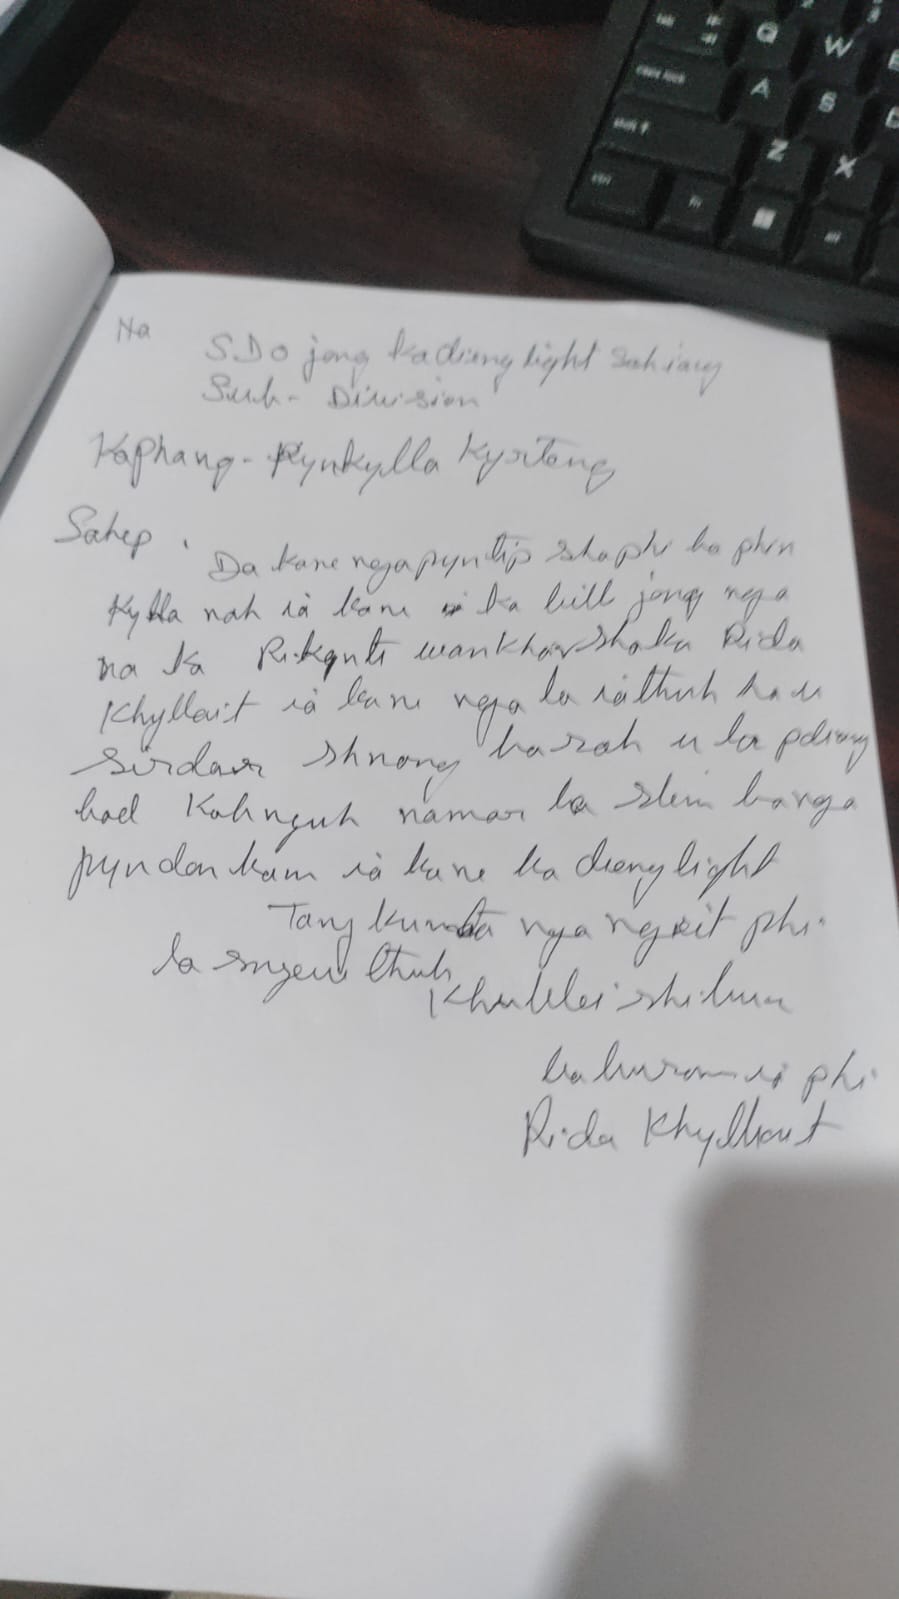 Na S.D.O jong ka dieng light Sohiong
Sub- Division
Kaphang - Pynkylla Kyrteng
Sahep,
Da kane nga pyntip sha phi ba phin
Kylla noh ia kane ka bill jong nga
na ka wankhar sha ka Rida
Khyllait ia kane nga la iathuh ha u
Sirdar Shnong barah u la pdiang
bad Kohnguh namar la slem ba nga
pyndonkam ia kane ka dieng light
Tang kumta nga ngeit phi
la sngewthuh
Khublei shibun
ba burom ia phi
Rida Khyllait